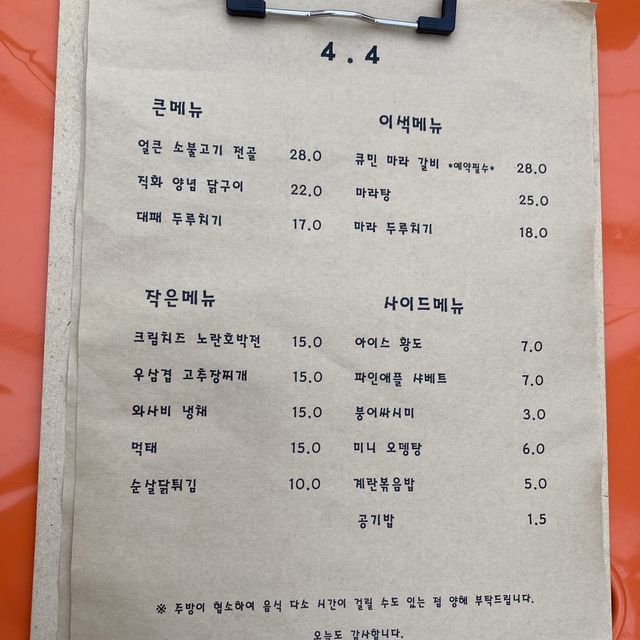 4 . 4
큰메뉴
얼큰 소불고기 전골 28.0
직화 양념 닭구이 22.0
대패 두루치기 17.0
이색메뉴
큐민 마라 갈비 *예약필수* 28.0
마라탕 25.0
마라 두루치기 18.0
작은메뉴
크림치즈 노란호박전 15.0
우삼겹 고추장찌개 15.0
와사비 냉채 15.0
먹태 15.0
순살닭튀김 10.0
사이드메뉴
아이스 황도 7.0
파인애플 샤베트 7.0
붕어싸시미 3.0
미니 오뎅탕 6.0
계란볶음밥 5.0
공기밥 1.5
※ 주방이 협소하여 음식 다소 시간이 걸릴 수도 있는 점 양해 부탁드립니다.
오늘도 감사합니다.